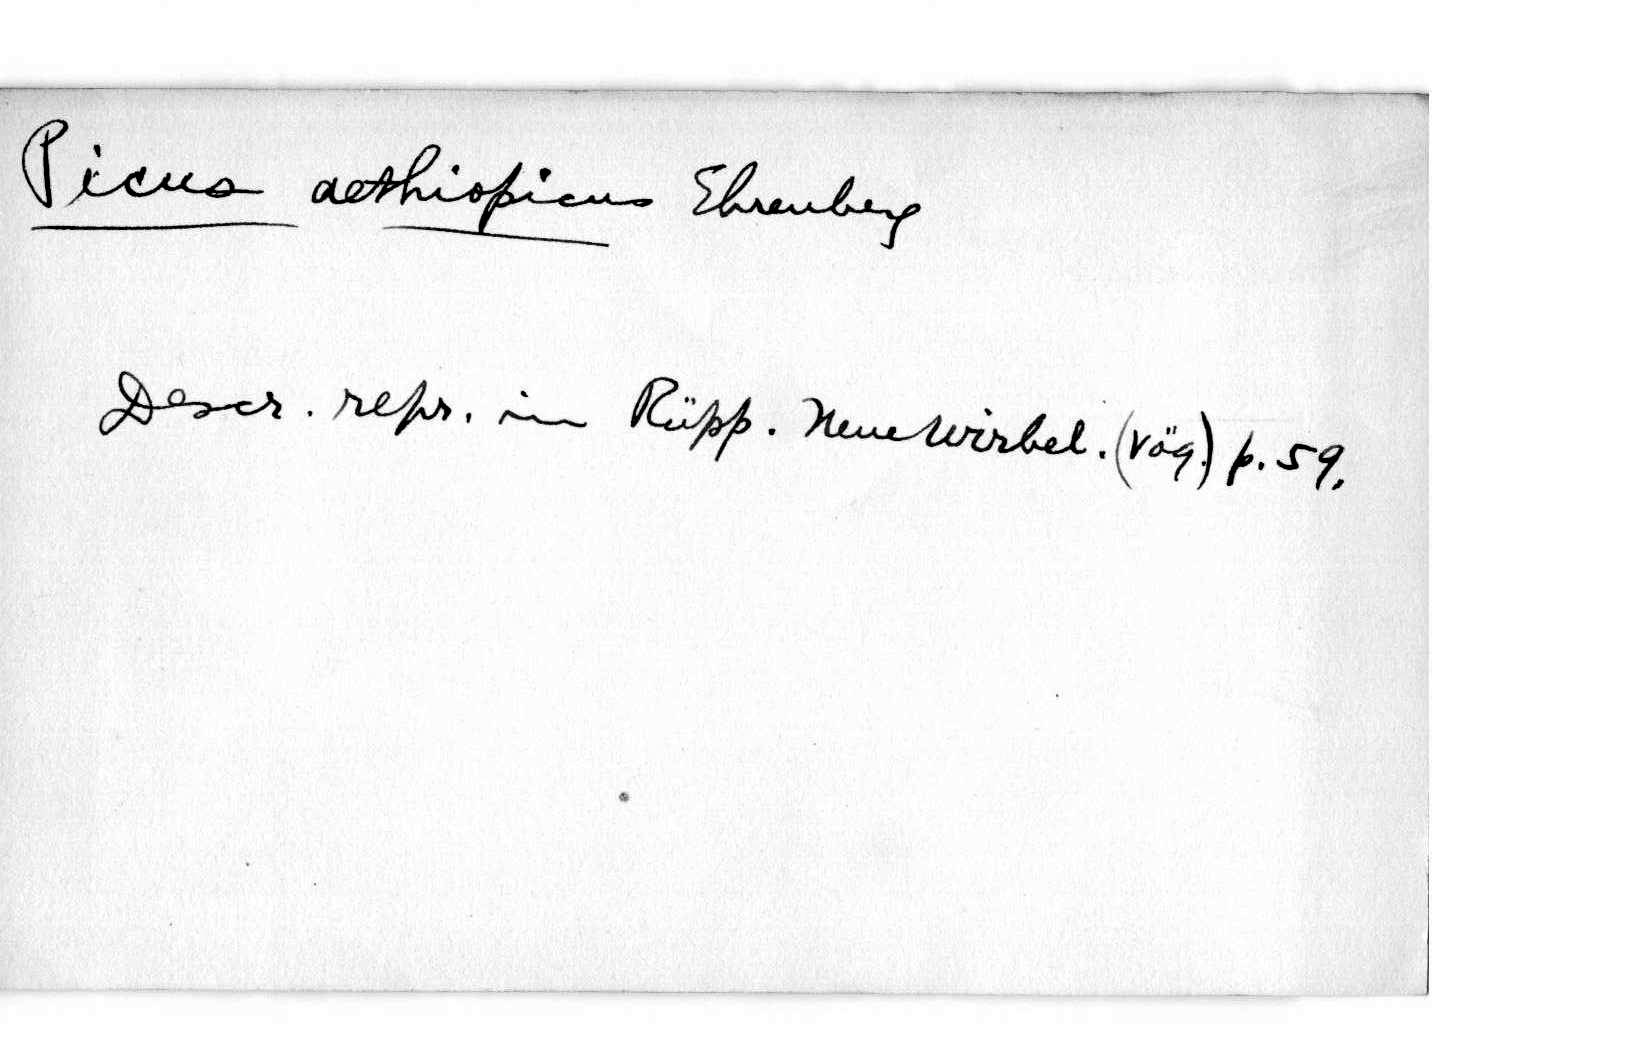 Picus aethiopicus Ehrenberg
Descr. repr. in Rüpp. Neue Wirbel. (Vög.) p. 59.